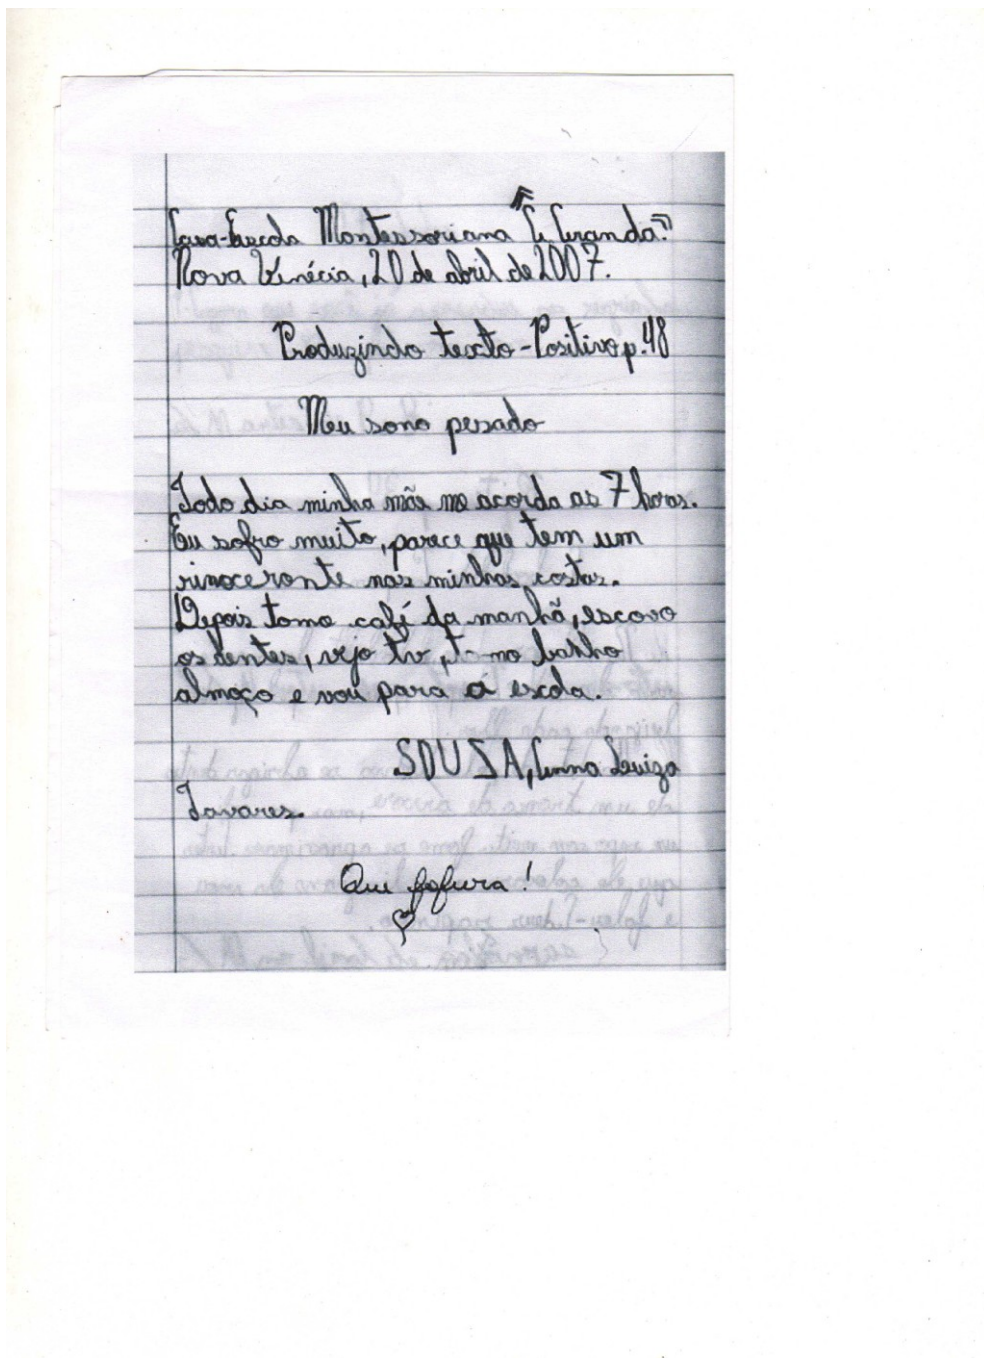 Casa-Escola Montessoriana "A Ciranda"
Nova Venécia, 20 de abril de 2007.
Produzindo texto - Positivo p.48
Meu sono pesado
Todo dia minha mãe me acorda as 7 horas.
Eu sofro muito, parece que tem um
rinoceronte nas minhas costas.
Depois tomo café da manhã, escovo
os dentes, vejo tv, t mo banho
almoço e vou para a escola.
SOUSA, Anna Luiza
Tavares.
Que fofura!